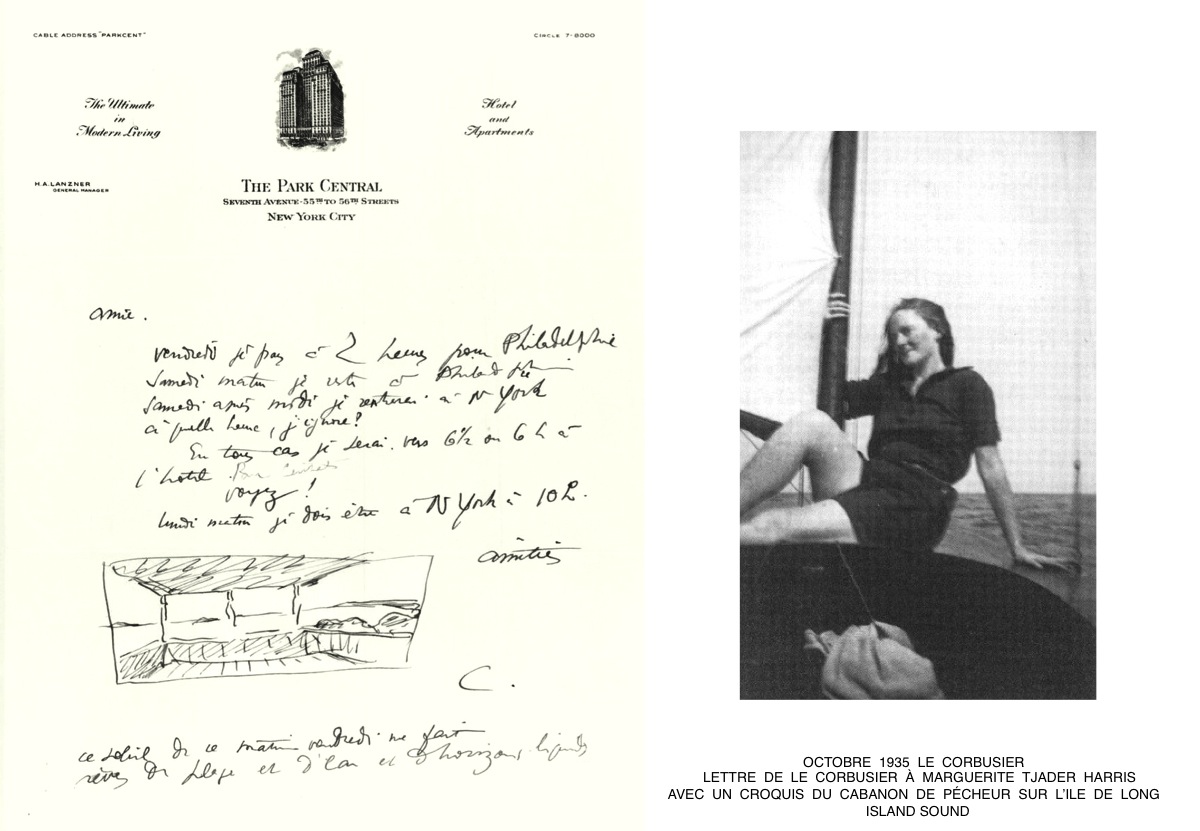 CABLE ADDRESS "PARKCENT"
CIRCLE 7-8000
The Ultimate
in
Modern Living
Hotel
and
Apartments
H.A. LANZNER
GENERAL MANAGER
THE PARK CENTRAL
SEVENTH AVENUE·55TH TO 56TH STREETS
NEW YORK CITY
amie.
vendredi je pars à 2 heures pour Philadelphie
Samedi matin je reste à Philadelphie
Samedi après midi je rentrerai à N York
à quelle heure, j'ignore?
En tous cas je serai vers 6½ ou 6 h à
l'hotel Park Central
voyez!
lundi matin je dois être à N York à 10h.
amitiés
C.
ce soleil de ce matin vendredi me fait
rêver de plage et d'eau et d'horizons liquides
OCTOBRE 1935 LE CORBUSIER
LETTRE DE LE CORBUSIER À MARGUERITE TJADER HARRIS
AVEC UN CROQUIS DU CABANON DE PÉCHEUR SUR L'ILE DE LONG
ISLAND SOUND